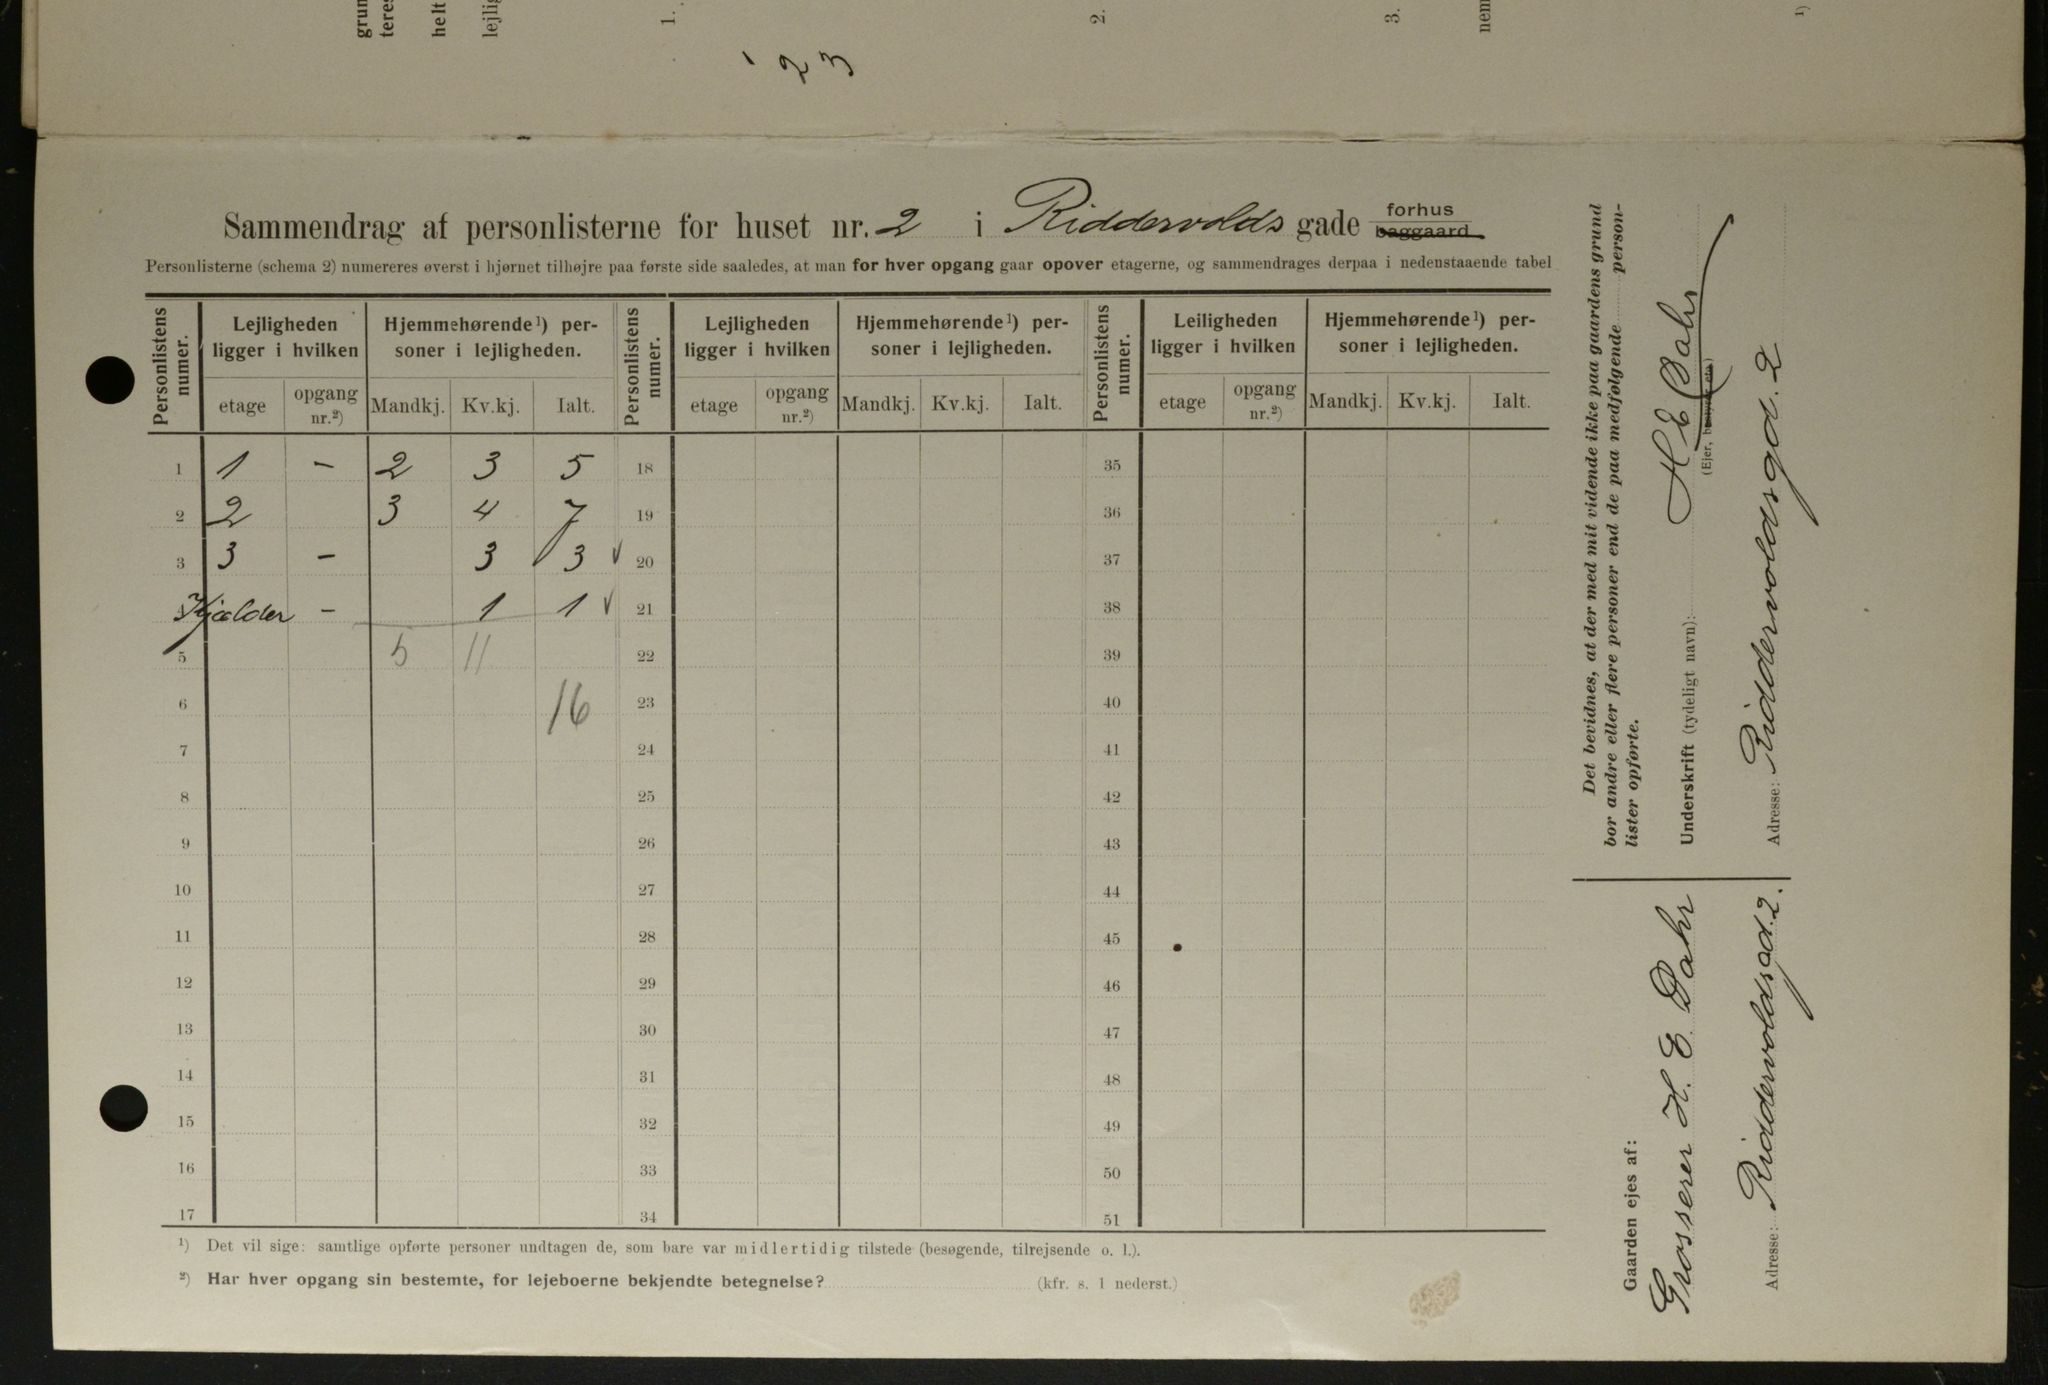 grun
teres
helt
lejlig
1.
2.
3.
nem
1)
1
2
3
Sammendrag af personlisterne for huset nr. 2 i Riddervolds gade forhus baggaard
Personlisterne (schema 2) numereres øverst i hjørnet tilhøjre paa første side saaledes, at man for hver opgang gaar opover etagerne, og sammendrages derpaa i nedenstaaende tabel
Personlistens numer. | Lejligheden ligger i hvilken | Hjemmehørende¹) personer i lejligheden. | Personlistens numer. | Lejligheden ligger i hvilken | Hjemmehørende¹) personer i lejligheden. | Personlistens numer. | Leiligheden ligger i hvilken | Hjemmehørende¹) personer i lejligheden.
etage | opgang nr.²) | Mandkj. | Kv.kj. | Ialt. | etage | opgang nr.²) | Mandkj. | Kv.kj. | Ialt. | etage | opgang nr.²) | Mandkj. | Kv.kj. | Ialt.
1 | 1 | – | 2 | 3 | 5 | 18 | 35
2 | 2 | | 3 | 4 | 7 | 19 | 36
3 | 3 | – | | 3 | 3 | 20 | 37
Kjælder | – | | 1 | 1 | 21 | 38
5 | | | 5 | 11 | | 22 | 39
6 | | | | | 16 | 23 | 40
7 24 41
8 25 42
9 26 43
10 27 44
11 28 45
12 29 46
13 30 47
14 31 48
15 32 49
16 33 50
17 34 51
¹) Det vil sige: samtlige opførte personer undtagen de, som bare var midlertidig tilstede (besøgende, tilrejsende o. l.).
²) Har hver opgang sin bestemte, for lejeboerne bekjendte betegnelse? (kfr. s. 1 nederst.)
Det bevidnes, at der med mit vidende ikke paa gaardens grund
bor andre eller flere personer end de paa medfølgende person-
lister opførte.
Underskrift (tydeligt navn): H E Dahr
(Ejer, bestyrer etc)
Adresse: Riddervoldsgd. 2
Gaarden ejes af:
Grosserer H. E. Dahr
Adresse: Riddervoldsgd. 2.